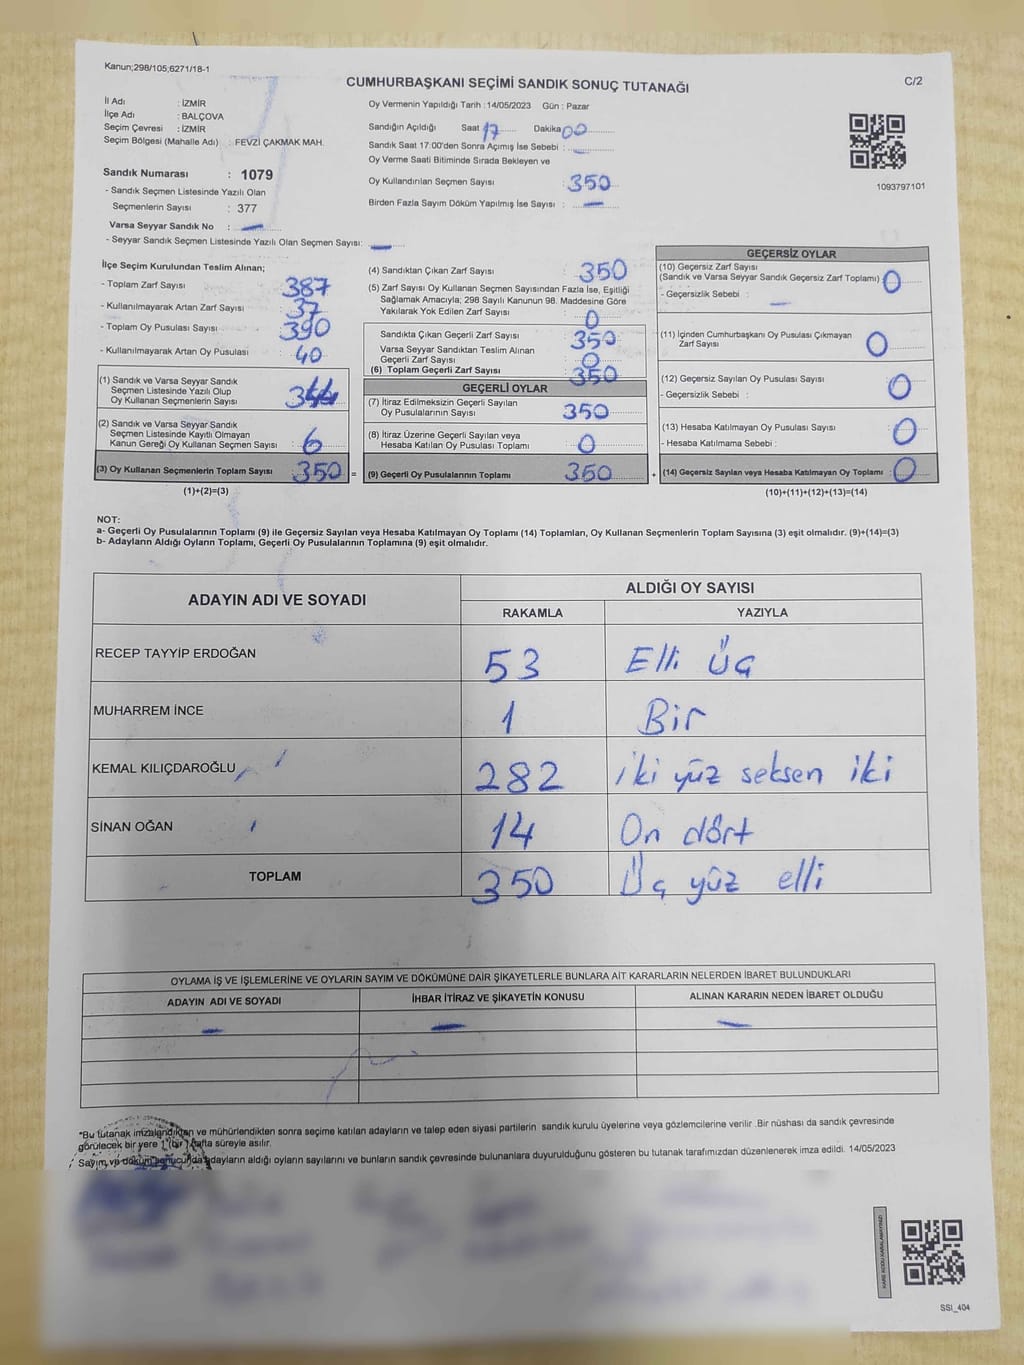 Kanun;298/105;6271/18-1
CUMHURBAŞKANI SEÇİMİ SANDIK SONUÇ TUTANAĞI
C/2
İl Adı : İZMİR
İlçe Adı : BALÇOVA
Seçim Çevresi : İZMİR
Seçim Bölgesi (Mahalle Adı) : FEVZİ ÇAKMAK MAH.
Sandık Numarası : 1079
- Sandık Seçmen Listesinde Yazılı Olan
Seçmenlerin Sayısı : 377
Varsa Seyyar Sandık No : —
- Seyyar Sandık Seçmen Listesinde Yazılı Olan Seçmen Sayısı: —
Oy Vermenin Yapıldığı Tarih : 14/05/2023 Gün : Pazar
Sandığın Açıldığı Saat 17 Dakika 00
Sandık Saat 17:00'den Sonra Açımış İse Sebebi : —
Oy Verme Saati Bitiminde Sırada Bekleyen ve
Oy Kullandırılan Seçmen Sayısı : 350
Birden Fazla Sayım Döküm Yapılmış İse Sayısı : —
1093797101
İlçe Seçim Kurulundan Teslim Alınan;
- Toplam Zarf Sayısı 387
- Kullanılmayarak Artan Zarf Sayısı 37
- Toplam Oy Pusulası Sayısı 390
- Kullanılmayarak Artan Oy Pusulası 40
(1) Sandık ve Varsa Seyyar Sandık
Seçmen Listesinde Yazılı Olup
Oy Kullanan Seçmenlerin Sayısı 344
(2) Sandık ve Varsa Seyyar Sandık
Seçmen Listesinde Kayıtlı Olmayan
Kanun Gereği Oy Kullanan Seçmen Sayısı 6
(3) Oy Kullanan Seçmenlerin Toplam Sayısı : 350 =
(1)+(2)=(3)
(4) Sandıktan Çıkan Zarf Sayısı 350
(5) Zarf Sayısı Oy Kullanan Seçmen Sayısından Fazla İse, Eşitliği
Sağlamak Amacıyla; 298 Sayılı Kanunun 98. Maddesine Göre
Yakılarak Yok Edilen Zarf Sayısı : 0
Sandıkta Çıkan Geçerli Zarf Sayısı 350
Varsa Seyyar Sandıktan Teslim Alınan
Geçerli Zarf Sayısı 0
(6) Toplam Geçerli Zarf Sayısı 350
GEÇERLİ OYLAR
(7) İtiraz Edilmeksizin Geçerli Sayılan
Oy Pusulalarının Sayısı 350
(8) İtiraz Üzerine Geçerli Sayılan veya
Hesaba Katılan Oy Pusulası Toplamı 0
(9) Geçerli Oy Pusulalarının Toplamı 350 +
GEÇERSİZ OYLAR
(10) Geçersiz Zarf Sayısı
(Sandık ve Varsa Seyyar Sandık Geçersiz Zarf Toplamı) 0
- Geçersizlik Sebebi : —
(11) İçinden Cumhurbaşkanı Oy Pusulası Çıkmayan
Zarf Sayısı : 0
(12) Geçersiz Sayılan Oy Pusulası Sayısı 0
- Geçersizlik Sebebi :
(13) Hesaba Katılmayan Oy Pusulası Sayısı : 0
- Hesaba Katılmama Sebebi :
(14) Geçersiz Sayılan veya Hesaba Katılmayan Oy Toplamı : 0
(10)+(11)+(12)+(13)=(14)
NOT:
a- Geçerli Oy Pusulalarının Toplamı (9) ile Geçersiz Sayılan veya Hesaba Katılmayan Oy Toplamı (14) Toplamları, Oy Kullanan Seçmenlerin Toplam Sayısına (3) eşit olmalıdır. (9)+(14)=(3)
b- Adayların Aldığı Oyların Toplamı, Geçerli Oy Pusulalarının Toplamına (9) eşit olmalıdır.
ADAYIN ADI VE SOYADI
ALDIĞI OY SAYISI
RAKAMLA YAZIYLA
RECEP TAYYİP ERDOĞAN 53 Elli üç
MUHARREM İNCE 1 Bir
KEMAL KILIÇDAROĞLU 282 iki yüz seksen iki
SİNAN OĞAN 14 On dört
TOPLAM 350 Üç yüz elli
OYLAMA İŞ VE İŞLEMLERİNE VE OYLARIN SAYIM VE DÖKÜMÜNE DAİR ŞİKAYETLERLE BUNLARA AİT KARARLARIN NELERDEN İBARET BULUNDUKLARI
ADAYIN ADI VE SOYADI İHBAR İTİRAZ VE ŞİKAYETİN KONUSU ALINAN KARARIN NEDEN İBARET OLDUĞU
— — —
*Bu tutanak imzalandıktan ve mühürlendikten sonra seçime katılan adayların ve talep eden siyasi partilerin sandık kurulu üyelerine veya gözlemcilerine verilir. Bir nüshası da sandık çevresinde
görülecek bir yere 1 (bir) hafta süreyle asılır.
Sayım ve döküm sonucunda adayların aldığı oyların sayılarını ve bunların sandık çevresinde bulunanlara duyurulduğunu gösteren bu tutanak tarafımızdan düzenlenerek imza edildi. 14/05/2023
KARE KODU KARALAMAYINIZ!
SSI_404